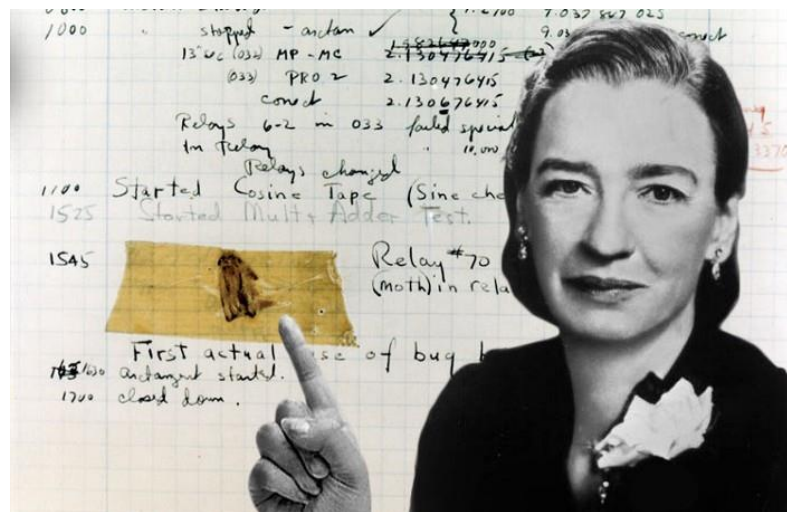 1000 " stopped - arctan ✓
9.03
13"uc (032) MP - MC 2.130476415
(033) PRO 2 2.130476415
conect 2.130676415
Relays 6-2 in 033 failed special
In Relay " 10,000
Relays changed
1100 Started Cosine Tape (Sine che
1525 Started Mult + Adder Test.
1545 Relay #70
(moth) in rela
First actual se of bug b
1630 arctangent started.
1700 closed down.